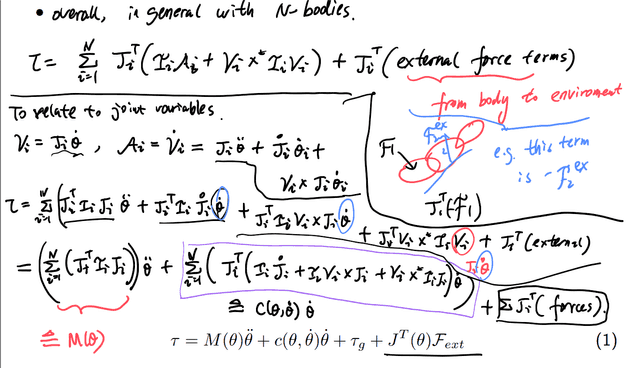 • overall, in general with N-bodies.
τ = Σ_{i=1}^{N} J_i^T (I_i A_i + V_i ×* I_i V_i) + J_i^T (external force terms)
To relate to joint variables.
from body to enviroment
V_i = J_i θ̇ , A_i = V̇_i = J_i θ̈ + J̊_i θ̇_i +
V_i × J_i θ̇_i
F_2^{ex}
F_1
e.g. this term
is -F_2^{ex}
J_i^T (F_1)
τ = Σ_{i=1}^{N} (J_i^T I_i J_i θ̈ + J_i^T I_i J̊_i θ̇ + J_i^T I_i V_i × J_i θ̇
+ J_i^T V_i ×* I_i V_i + J_i^T (external)
J_i θ̇
= (Σ_{i=1}^{N} (J_i^T I_i J_i)) θ̈ + Σ_{i=1}^{N} (J_i^T (I_i J̊_i + I_i V_i × J_i + V_i ×* I_i J_i) θ̇) + Σ J_i^T (forces).
≜ M(θ)
≜ C(θ,θ̇) θ̇
τ = M(θ)θ̈ + c(θ, θ̇)θ̇ + τ_g + J^T(θ)F_{ext} (1)